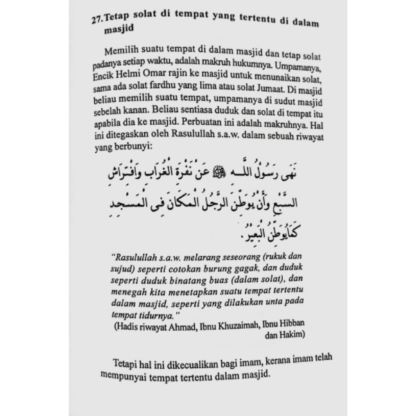 27. Tetap solat di tempat yang tertentu di dalam
masjid
Memilih suatu tempat di dalam masjid dan tetap solat
padanya setiap waktu, adalah makruh hukumnya. Umpamanya,
Encik Helmi Omar rajin ke masjid untuk menunaikan solat,
sama ada solat fardhu yang lima atau solat Jumaat. Di masjid
beliau memilih suatu tempat, umpamanya di sudut masjid
sebelah kanan. Beliau sentiasa duduk dan solat di tempat itu
apabila dia ke masjid. Perbuatan ini adalah makruhnya. Hal
ini ditegaskan oleh Rasulullah s.a.w. dalam sebuah riwayat
yang berbunyi:
نَهَى رَسُوْلُ اللَّهِ ﷺ عَنْ نَقْرَةِ الْغُرَابِ وَافْتِرَاشِ
السَّبُعِ وَأَنْ يُوَطِّنَ الرَّجُلُ الْمَكَانَ فِى الْمَسْجِدِ
كَمَا يُوَطِّنُ الْبَعِيْرُ.
"Rasulullah s.a.w. melarang seseorang (rukuk dan
sujud) seperti cotokan burung gagak, dan duduk
seperti duduk binatang buas (dalam solat), dan
menegah kita menetapkan suatu tempat tertentu
dalam masjid, seperti yang dilakukan unta pada
tempat tidurnya."
(Hadis riwayat Ahmad, Ibnu Khuzaimah, Ibnu Hibban
dan Hakim)
Tetapi hal ini dikecualikan bagi imam, kerana imam telah
mempunyai tempat tertentu dalam masjid.